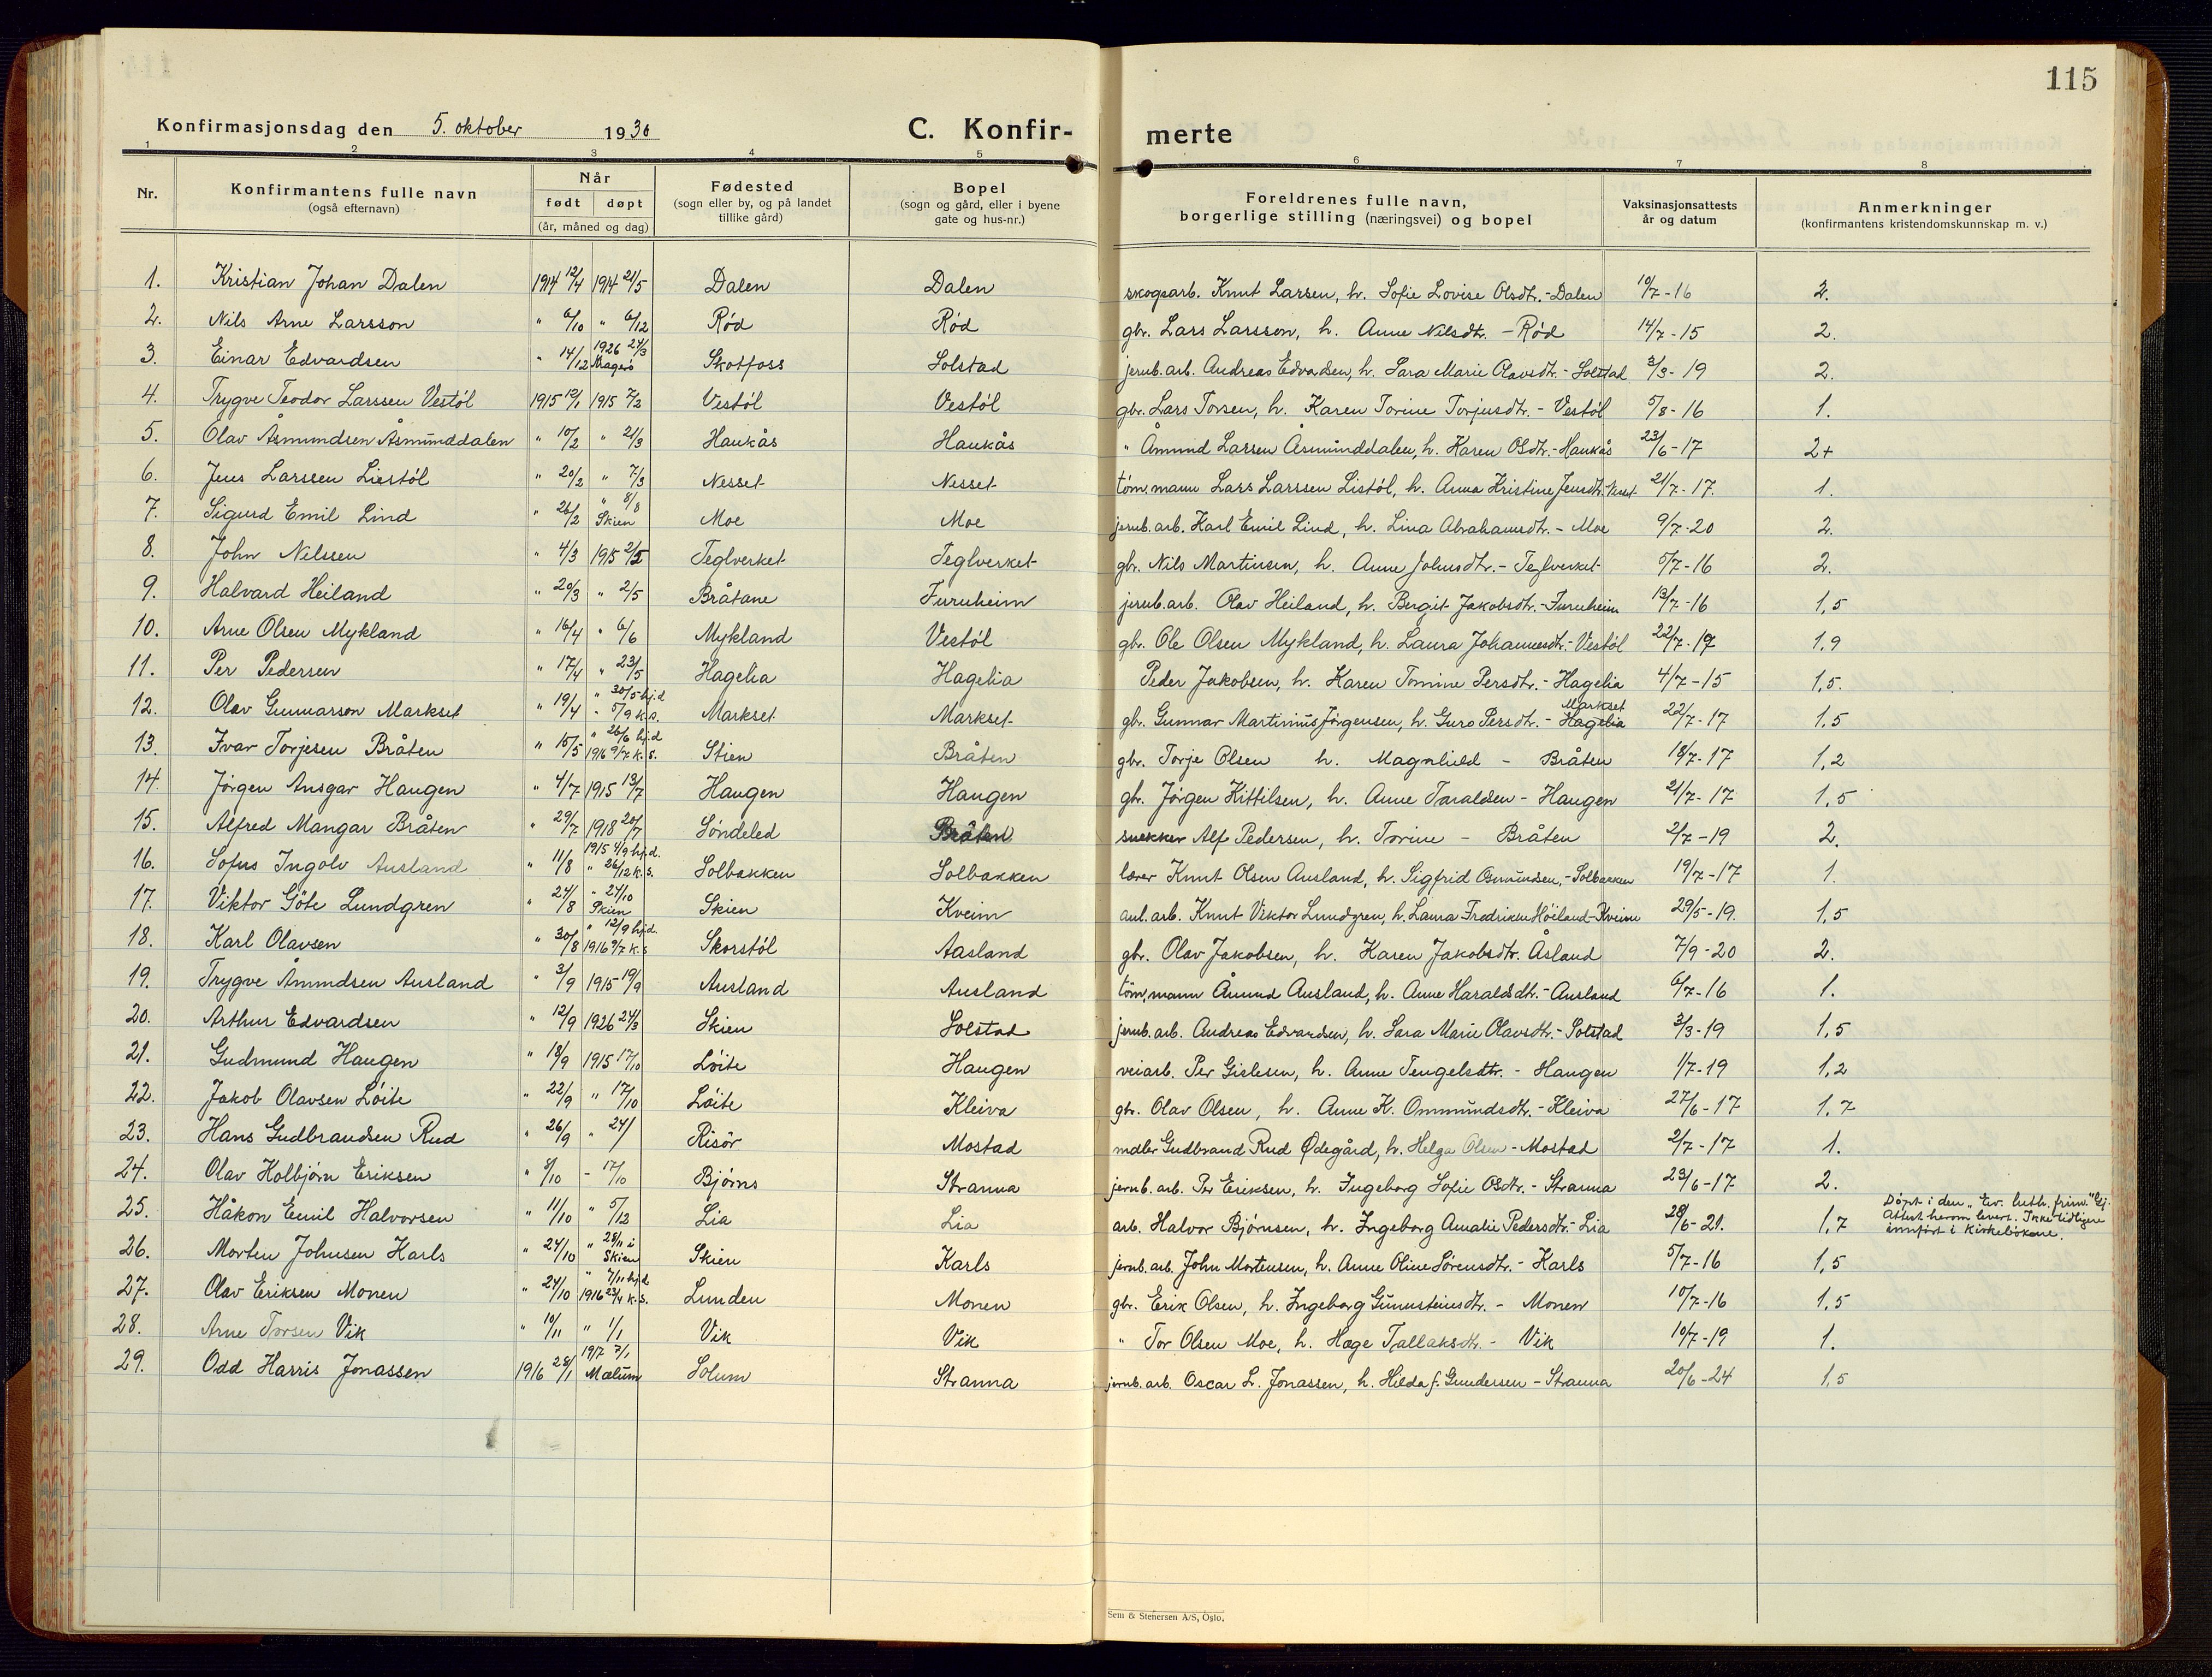 115
Konfirmasjonsdag den 5. oktober 1930 C. Konfir- merte
1 2 3 4 5 6 7 8
Nr. Konfirmantens fulle navn (også efternavn) Når født døpt (år, måned og dag) Fødested (sogn eller by, og på landet tillike gård) Bopel (sogn og gård, eller i byene gate og hus-nr.) Foreldrenes fulle navn, borgerlige stilling (næringsvei) og bopel Vaksinasjonsattests år og datum Anmerkninger (konfirmantens kristendomskunnskap m. v.)
1. Kristian Johan Dalen 1914 12/4 1914 21/5 Dalen Dalen skogsarb. Knut Larsen, h. Sofie Lovise Olsdtr. - Dalen 10/7-16 2.
2. Nils Arne Larsson " 6/10 " 6/12 Rød Rød gbr. Lars Larsson, h. Anne Nilsdtr. - Rød 14/7-15 2.
3. Einar Edvardsen " 14/12 1926 24/3 Kragerø Skotfoss Solstad jernb.arb. Andreas Edvardsen, h. Sara Marie Olavsdtr. - Solstad 3/3-19 2.
4. Trygve Teodor Larssen Vestøl 1915 12/1 1915 7/2 Vestøl Vestøl gbr. Lars Torsen, h. Karen Torine Torjusdtr. - Vestøl 5/8-16 1.
5. Olav Åsmundsen Åsmunddalen " 10/2 " 21/3 Haukås Haukås " Åmund Larsen Åsmunddalen, h. Karen Olsdtr. - Haukås 23/6-17 2+
6. Jens Larssen Liestøl " 20/2 " 7/3 Nesset Nesset töm.mann Lars Larssen Listøl, h. Anna Kristine Jensdtr. - Neset 21/7-17. 1.
7. Sigurd Emil Lind " 26/2 " 8/8 Skien Moe Moe jernb.arb. Karl Emil Lind, h. Lina Abrahamsdtr. - Moe 9/7-20 2.
8. John Nilssen " 4/3 1915 2/5 Teglverket Teglverket gbr. Nils Martinsen, h. Anne Johnsdtr. - Teglverket 5/7-16 2.
9. Halvard Heiland " 20/3 " 2/5 Bråtane Furuheim jernb.arb. Olav Heiland, h. Bergit Jakobsdtr. - Furuheim 13/7-16 1,5
10. Arne Olsen Mykland " 16/4 " 6/6 Mykland Vestøl gbr. Ole Olsen Mykland, h. Laura Johannesdtr. - Vestøl 22/7-17 1,9
11. Per Pedersen " 17/4 " 23/5 Hagelia Hagelia Peder Jakobsen, h. Karen Tomine Persdtr. - Hagelia 4/7-15 1,5.
12. Olav Gunnarson Markset " 19/4 " 30/5 hj.d. " 5/9 k.s. Markset Markset gbr. Gunnar Martinius Jørgensen, h. Guro Persdtr. - Hagelia Markset 22/7-17 1,5
13. Ivar Torjesen Bråten " 15/5 " 26/6 hj.d 1916 9/7 k.s. Stien Bråten gbr. Torje Olsen h. Magnhild - Bråten 18/7-17 1,2
14. Jørgen Ansgar Haugen " 4/7 1915 13/7 Haugen Haugen gbr. Jørgen Kittilsen, h. Anne Taraldsen - Haugen 21/7-17 1,5
15. Alfred Mangar Bråten " 29/7 1918 20/7 Søndeled Bråten snekker Alf Pedersen, h. Torine - Bråten 2/7-19 2.
16. Sofus Ingolv Ausland " 11/8 1915 4/9 hj.d. " 26/12 k.s. Solbakken Solbakken lærer Knut Olsen Ausland, h. Sigfrid Osmundsen, - Solbakken 19/7-17 1.
17. Viktor Göte Lundgren " 24/8 " 24/10 Skien Skien Kveim anl.arb. Knut Viktor Lundgren, h. Laura Fredrikke Høiland - Kveim 29/5-19. 1,5
18. Karl Olavsen " 30/8 " 12/9 hj.d. 1916 9/7 k.s Skorstøl Aasland gbr. Olav Jakobsen, h. Karen Jakobsdtr. Åsland 7/9-20 2.
19. Trygve Åmundsen Ausland " 3/9 1915 19/9 Ausland Ausland töm.mann Åmund Ausland, h. Anne Haraldsdtr. - Ausland 6/7-16 1.
20. Arthur Edvardsen " 12/9 1926 24/3 Skien Solstad jernb.arb. Andreas Edvardsen, h. Sara Marie Olavsdtr. - Solstad 3/3-19 1,5
21. Gudmund Haugen " 18/9 1915 17/10 Løite Haugen veiarb. Per Gislesen, h. Anne Tengelsdtr. - Haugen 1/7-19 1,2
22. Jakob Olavsen Løite " 22/9 " 17/10 Løite Kleiva gbr. Olav Olsen, h. Anne K. Ommundsdtr. - Kleiva 27/6-17 1,7
23. Hans Gudbrandsen Rud " 26/9 " 24/ Risør Mostad maler Gudbrand Rud Ødegård, h. Helga Olsen - Mostad 2/7-17 1.
24. Olav Kolbjørn Eriksen " 8/10 - 17/10 Bjørns Stranna jernb.arb. Per Eriksen, h. Ingeborg Sofie Olsdtr. - Stranna 23/6-17 2.
25. Håkon Emil Halvorsen " 11/10 " 5/12 Lia Lia arb. Halvor Bjørnsen, h. Ingeborg Amalie Pedersdtr. - Lia 28/6-21. 1,7 Døpt i den "Ev. luth. frim." Gj. Attest herom levert. Ikke tidligere innført i kirkebökene.
26. Morten Johnsen Karls " 24/10 " 28/11 i Skien Skien Karls jernb.arb. John Mortensen, h. Anne Oline Sørensdtr. - Karls 5/7-16 1,5
27. Olav Eriksen Monen " 24/10 " 7/11 hj.d. 1916 23/4 k.s. Lunden Monen gbr. Erik Olsen, h. Ingeborg Gunnsteinsdtr. - Monen 10/7-16 1,5
28. Arne Torsen Vik " 10/11 " 1/1 Vik Vik " Tor Olsen Moe, h. Hæge Tallaksdtr. - Vik 10/7-19 1.
29. Odd Harris Jonassen 1916 28/1 1917 7/1 Mælum Solum Stranna jernb.arb. Oscar L. Jonassen, h. Hilda f. Gundersen - Stranna 20/6-24 1,5
Sem & Stenersen A/S, Oslo.